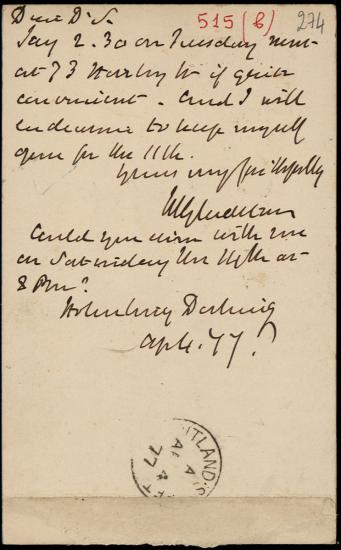 Dear Dr S. 515 (6) 274
Say 2.30 on Tuesday next
at 73 Harley St if quite
convenient. And I will
endeavour to keep myself
open for the 11th.
Yours very faithfully
WEGladstone
Could you dine with me
on Saturday the 14th at
8 PM?
Holmbury Dorking
Ap 4. 77.
TLAND.S
A
77